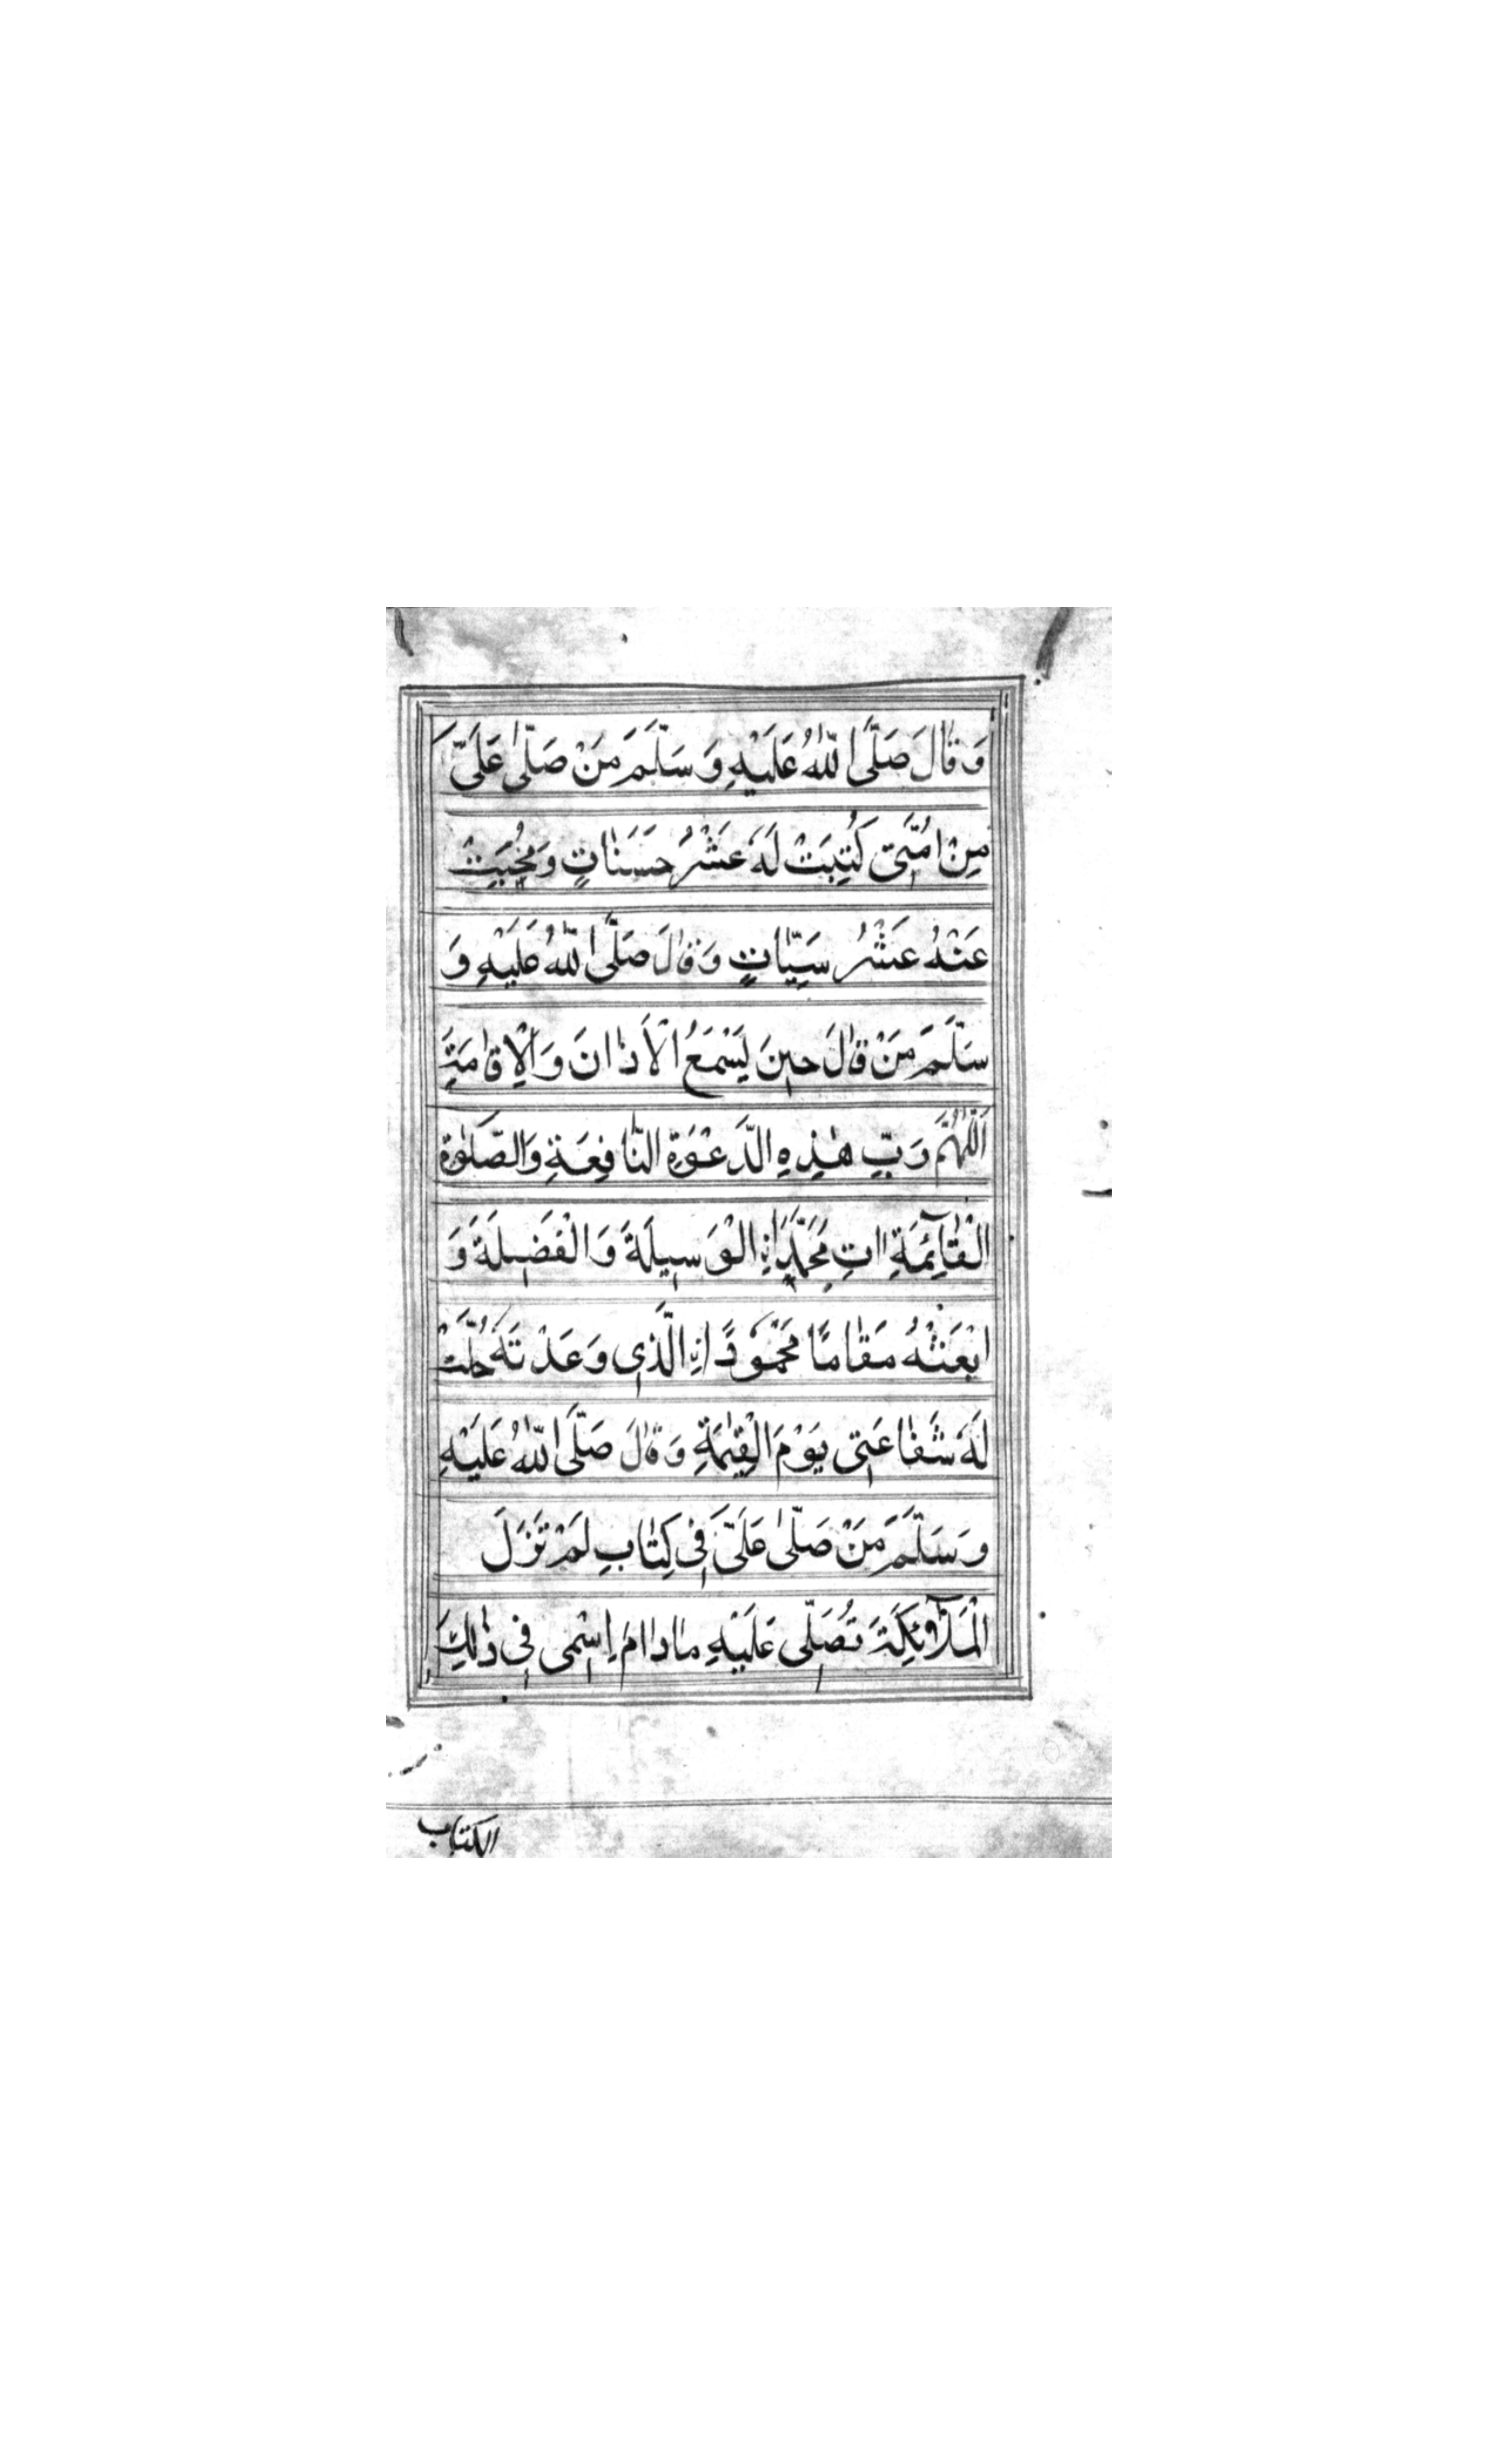 وَقَالَ صَلَّى اللّٰهُ عَلَيْهِ وَسَلَّمَ مَنْ صَلّٰى عَلَىَّ
مِنْ اُمَّتِى كُتِبَتْ لَهٗ عَشْرُ حَسَنَاتٍ وَمُحِيَتْ
عَنْهُ عَشْرُ سَيِّاٰتٍ وَقَالَ صَلَّى اللّٰهُ عَلَيْهِ وَ
سَلَّمَ مَنْ قَالَ حِينَ يَسْمَعُ الْاَذَانَ وَالْاِقَامَةِ
اَللّٰهُمَّ رَبِّ هٰذِهِ الدَّعْوَةِ النَّافِعَةِ وَالصَّلٰوةِ
الْقَآئِمَةِ اٰتِ مُحَمَّدًا نِ الْوَسِيلَةَ وَالْفَضِلَةَ وَ
ابْعَثْهُ مَقَامًا مَحْمُودًا نِ الَّذِى وَعَدْتَهٗ حَلَّتْ
لَهٗ شَفَاعَتِى يَوْمَ الْقِيٰمَةِ وَقَالَ صَلَّى اللّٰهُ عَلَيْهِ
وَسَلَّمَ مَنْ صَلّٰى عَلَىَّ فِى كِتَابٍ لَمْ تَزَلَ
الْمَلَآئِكَةَ تُصَلِّى عَلَيْهِ مَادَامَ اِسْمِى فِى ذٰلِكَ
الكتاب